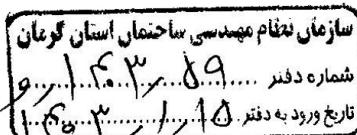 سازمان نظام مهندسی ساختمان استان کرمان
شماره دفتر
تاریخ ورود به دفتر ۱۴۰۳/۱/۱۵